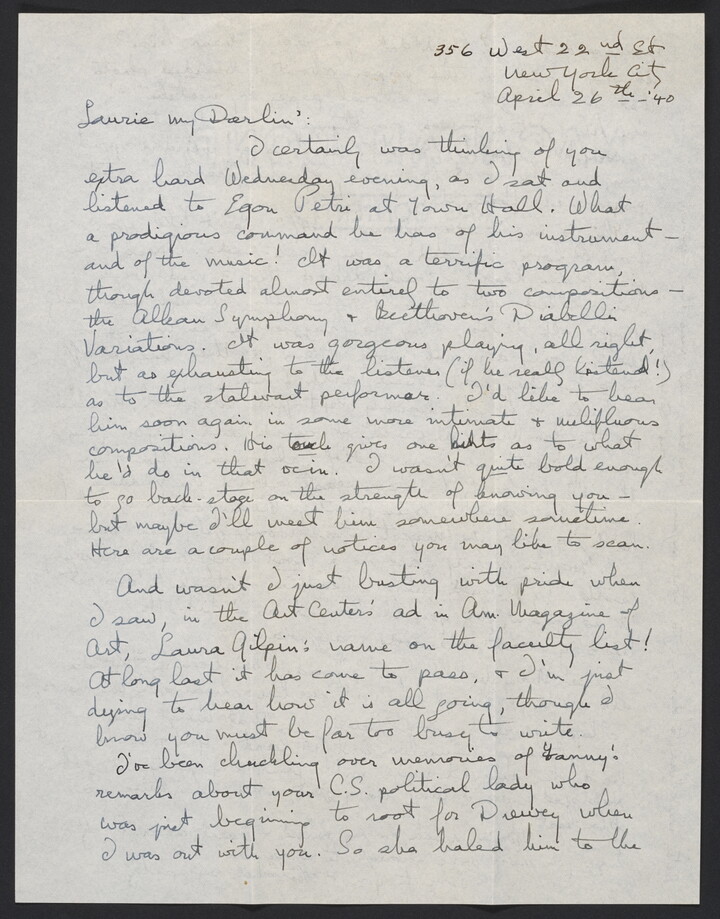 356 West 22nd St
New York City
April 26th - '40
Laurie my Darlin':
I certainly was thinking of you
extra hard Wednesday evening, as I sat and
listened to Egon Petri at Town Hall. What
a prodigious command he has of his instrument –
and of the music! It was a terrific program,
though devoted almost entirel to two compositions –
the Alkan Symphony + Beethoven's Diabelli
Variations. It was gorgeous playing, all right,
but as exhausting to the listener (if he really listened!)
as to the stalwart performer. I'd like to hear
him soon again in some more intimate + mellifluous
compositions. His touch gives one hints as to what
he'd do in that vein. I wasn't quite bold enough
to go back-stage on the strength of knowing you –
but maybe I'll meet him somewhere sometime.
Here are a couple of notices you may like to scan.
And wasn't I just busting with pride when
I saw, in the Art Center's ad in Am. Magazine of
Art, Laura Gilpin's name on the faculty list!
At long last it has come to pass, + I'm just
dying to hear how it is all going, though I
know you must be far too busy to write.
I've been chuckling over memories of Fanny's
remarks about your C.S. political lady who
was just beginning to root for Dewey when
I was out with you. So she haled him to the